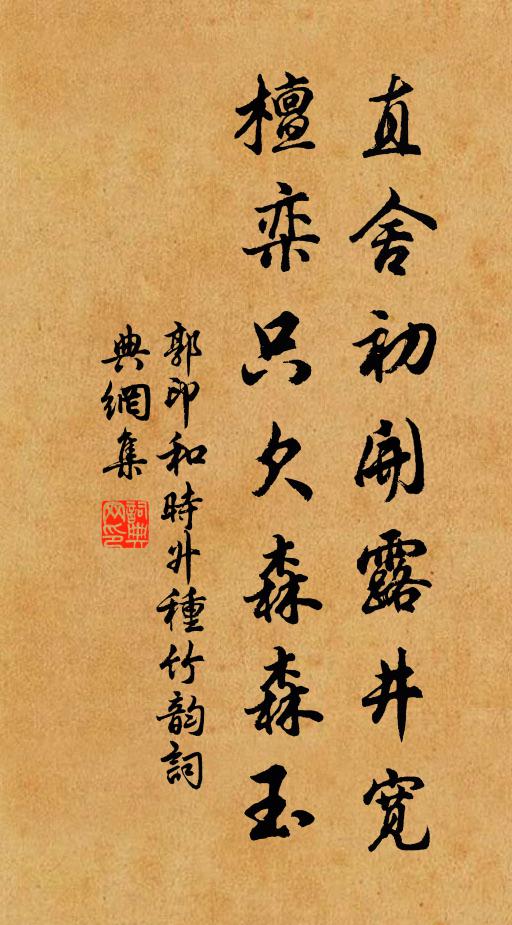 直舍初開露井寬
檀栾只欠森森玉
郭印和時升種竹韵詞
典網集
詞典
网印